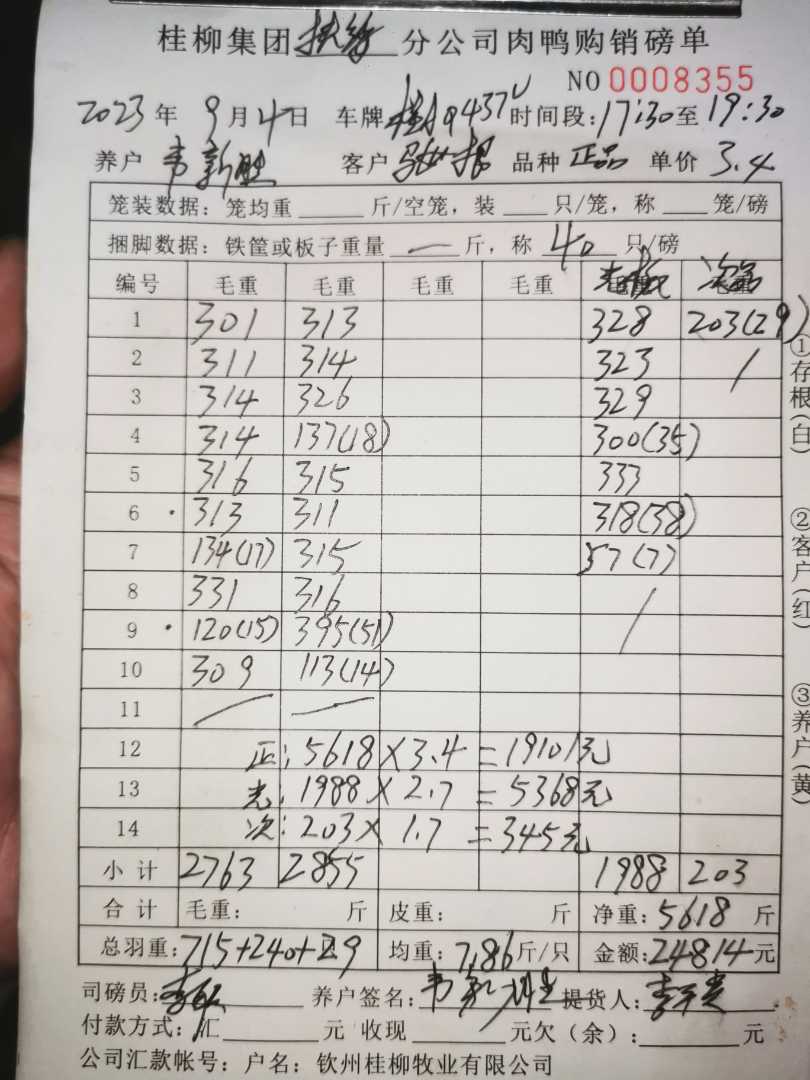 桂柳集团 分公司肉鸭购销磅单
NO 0008355
2023年 9月4日 车牌 9437U 时间段:17:30至19:30
养户 韦新胜 客户 品种 正品 单价 3.4
笼装数据: 笼均重 斤/空笼, 装 只/笼, 称 笼/磅
捆脚数据: 铁筐或板子重量 — 斤, 称 40 只/磅
编号 毛重 毛重 毛重 毛重
1 301 313 328 203(29)
2 311 314 323 /
3 314 326 329
4 314 137(18) 300(35)
5 316 315 333
6 313 311 318(38)
7 134(17) 315 57(7)
8 331 316 /
9 120(15) 395(51)
10 309 113(14)
11 — —
12 正: 5618×3.4=19101元
13 光: 1988×2.7=5368元
14 次: 203×1.7=345元
小计 2763 2855 1988 203
合计 毛重: 斤 皮重: 斤 净重: 5618 斤
总羽重: 715+240+29 均重: 7.86斤/只 金额: 24814元
司磅员: 养户签名: 提货人:
付款方式: 汇 元 收现 元欠(余): 元
公司汇款帐号: 户名: 钦州桂柳牧业有限公司
①存根(白)
②客户(红)
③养户(黄)